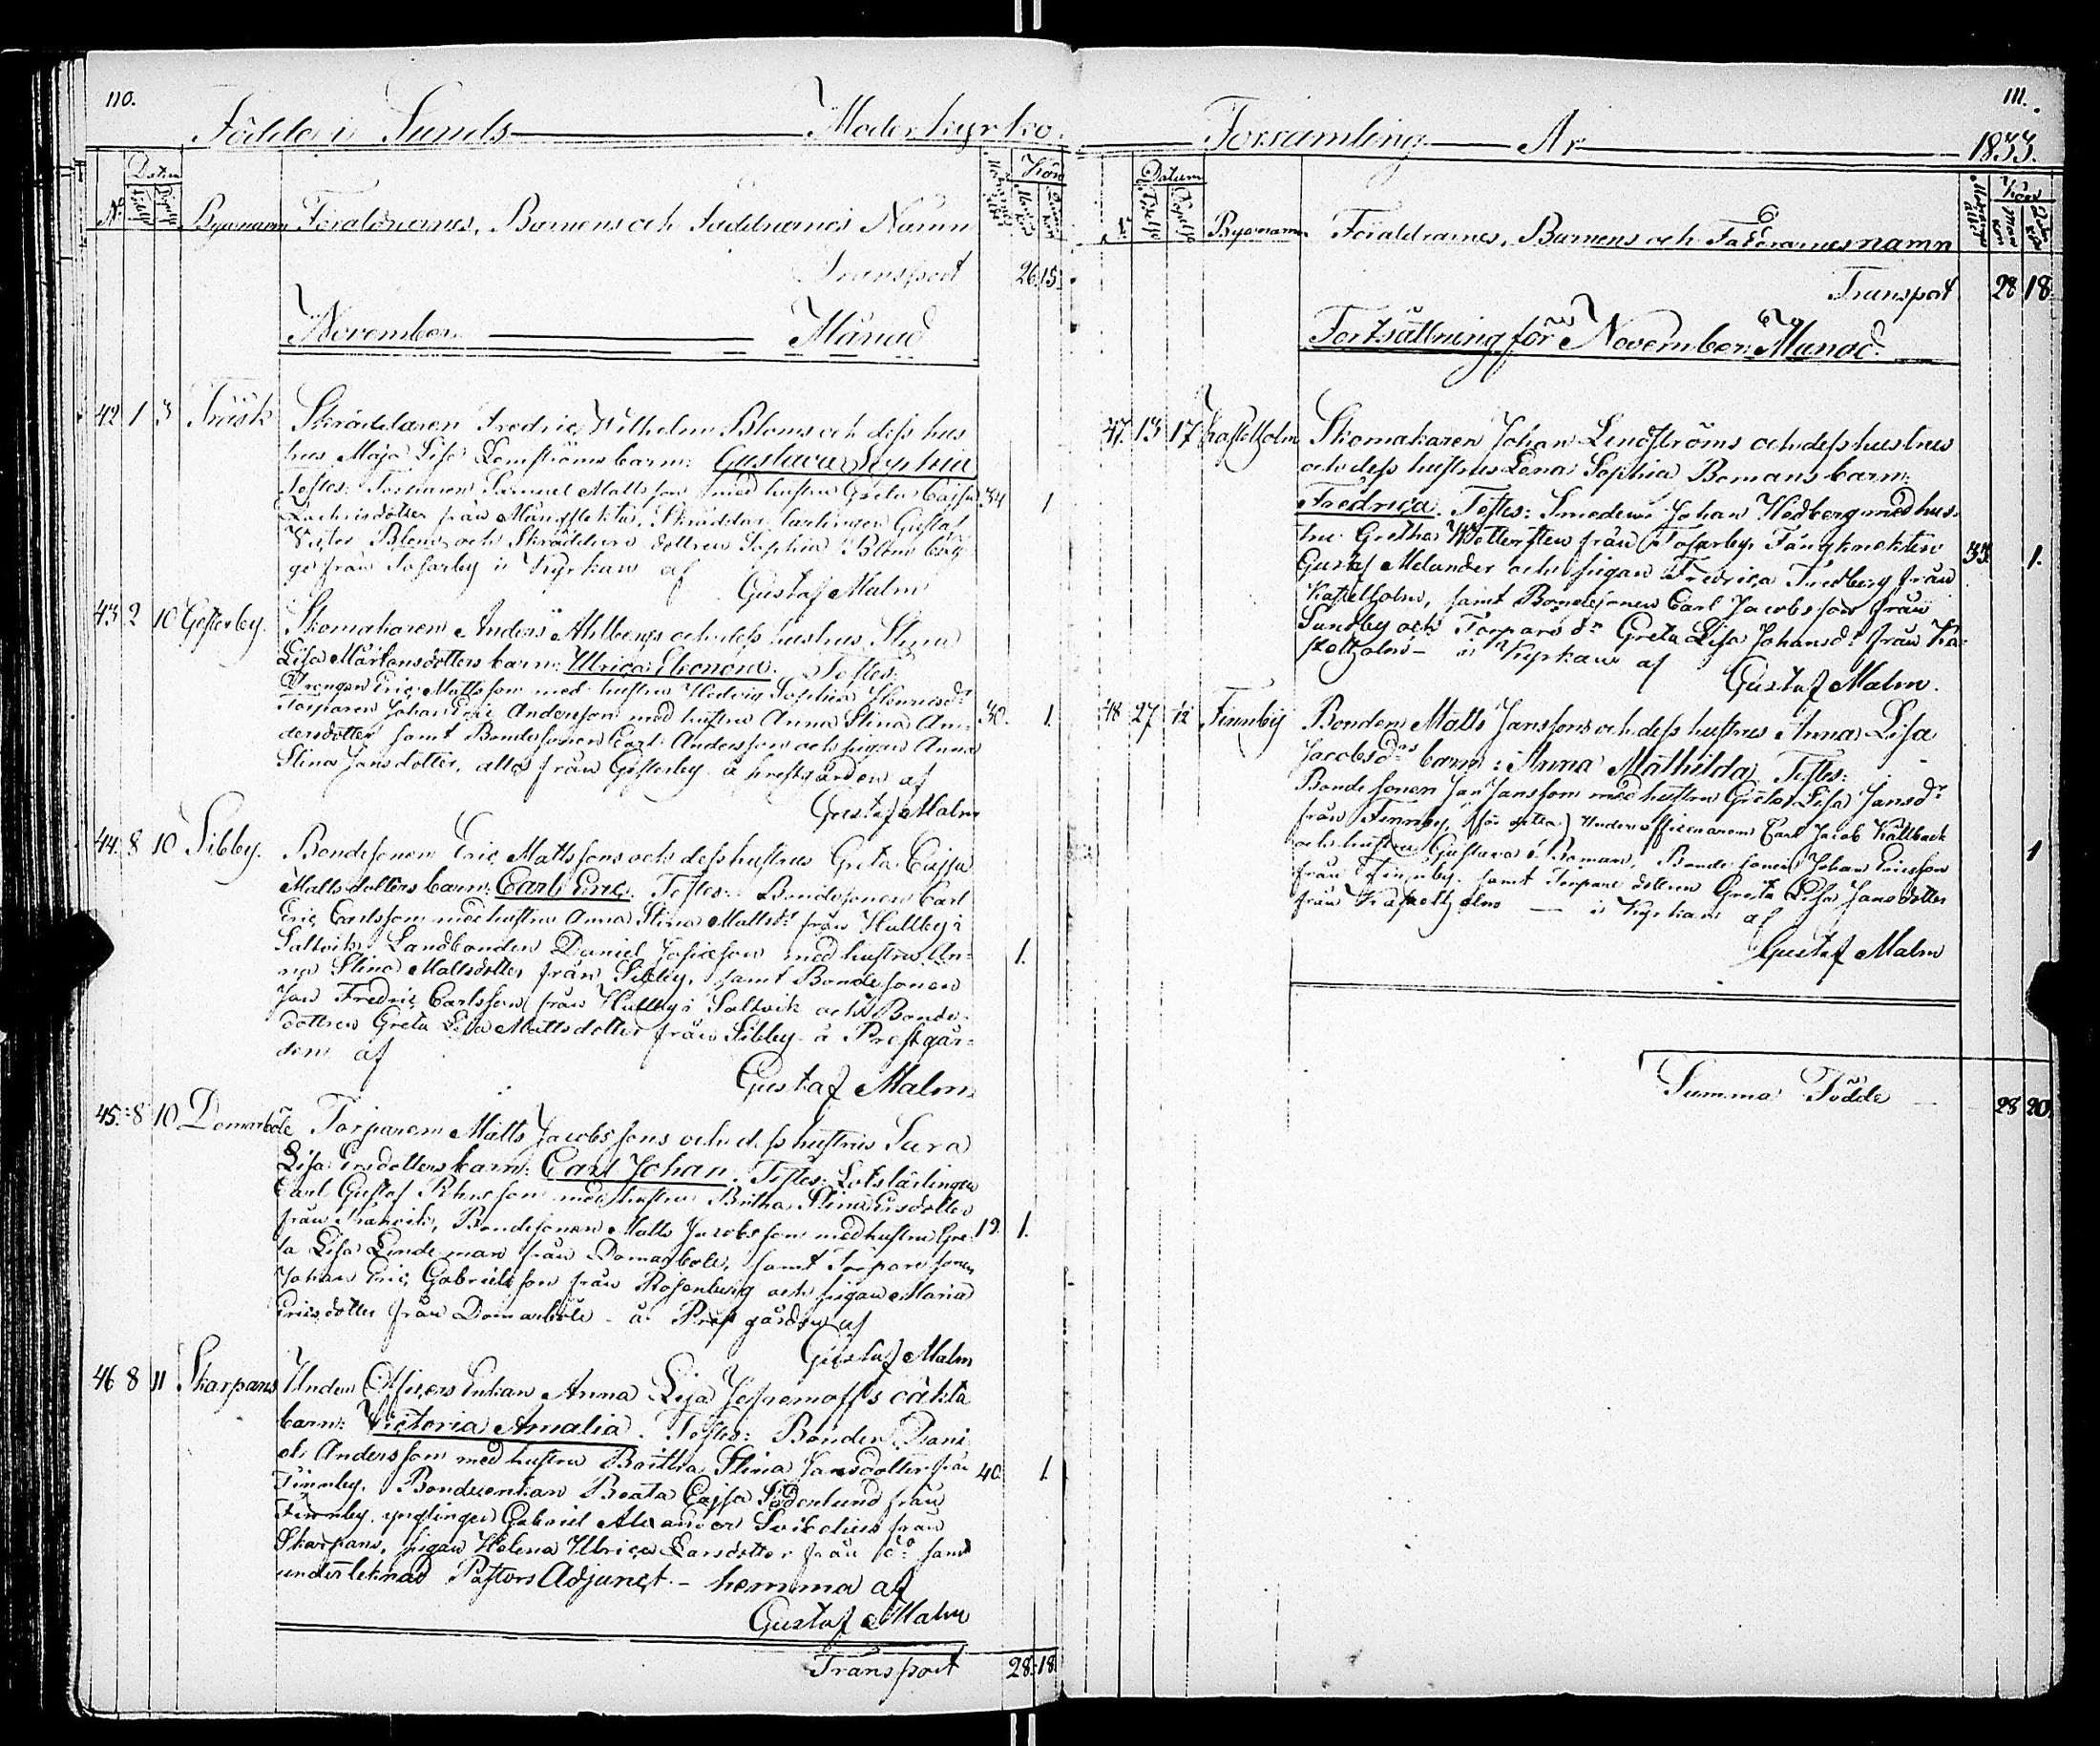 110.
Födde i Sunds Moderkyrko
No Datum Födelse Döpelse Bynamn Föräldrarnes, Barnens och Faddrarnes Namn Kön
Transport 26 15
November Månad
42 1 3 Träsk Skräddaren Fredric Wilhelm Bloms och dess hus
trus Maja Lisa barn: Gustava Sophia
Testes: Torparen Samuel Mattsson med hustru Greta Cajsa 34 1
från Mångstekta, Skräddar lärlingen Gustaf
Blom och Skräddare dottren Sophia Blom bäg
ge från Tosarby i Kyrkan af Gustaf Malm
43 2 10 Gesterby. Skomakaren Anders Ahlbergs och dess hustrus Stina
Lisa Mårtensdotters barn: Ulrica Eleonora. Testes:
Drengen Eric Mattsson med hustru Hedvig Sophia Henricsdr
Torparen Johan Eric Andersson med hustru Anna Stina An- 30. 1.
dersdotter samt Bondesonen Carl Andersson och pigan Anna
Stina Jansdotter, alla från Gesterby å prestgården af
Gustaf Malm
44. 8 10 Sibby. Bondesonen Eric Mattssons och dess hustrus Greta Cajsa
Mattsdotters barn: Carl Eric. Testes: Bondesonen Carl
Eric Carlsson med hustru Anna Stina Mattsdr från Hullby i
Saltvik, Landbonden Daniel Josefsson med hustru An- 1.
na Stina Mattsdotter från Sibby, samt Bondesonen
Jan Fredric Carlsson från Hullby i Saltvik och Bonde-
dottren Greta Lisa Mattsdotter från Sibby å Prestgår-
den af
Gustaf Malm.
45. 8 10 Domarböle Torparen Matts Jacobssons och dess hustrus Sara
Lisa Ersdotters barn: Carl Johan. Testes: Lotslärlingen
Carl Gustaf med hustru Britha Stina Ersdotter
från, Bondesonen Matts Jacobsson med hustru Gre- 19. 1.
ta Lisa Lindeman från Domarböle, samt Torpare sonen
Johan Eric Gabrielsson från Rosenberg och pigan Maria
Ericsdotter från Domarböle - å Prestgården af
Gustaf Malm
46 8 11 Skarpans Under Officers Enkan Anna Lisa oäkta
barn: Victoria Amalia. Testes: Bonden Dani
el Andersson med hustru Baitha Stina Jansdotter från 40. 1.
Finnby. Bondeenkan Beata Cajsa Söderlund från
Finnby. ynglingen Gabriel Alexander från
Skarpans, pigan Helena Ulrica Larsdotter från do samt
undertecknad Pastors Adjunct. - hemma af
Gustaf Malm
Transport 28 18
111.
Församling År 1833.
No Datum Födelse Döpelse Bynamn Föräldrarnes, Barnens och Faddrarnes namn Kön
Transport 28 18.
Fortsättning för November Månad.
47. 13 17 Kastelholm Skomakaren Johan Lindströms och dess hustrus
och dess hustrus Lena Sophia Bomans barn:
Fredrica. Testes: Smeden Johan Hedberg med hus-
tru Gretha från Tosarby, Fångknekten
Gustaf Melander och pigan Fredrica Fredberg från 33. 1.
Kastelholm, samt Bondesonen Carl Jacobsson från
Sundby och Torpare dr Greta Lisa Johansdr från Ka-
stelholm - i Kyrkan af
Gustaf Malm.
48 27 12 Finnby Bonden Matts Janssons och dess hustrus Anna Lisa
Jacobsdrs barn: Anna Mathilda. Testes:
Bondesonen Jan Jansson med hustru Greta Lisa Jansdr
från Finnby, Underofficeraren Carl Jacob Källback 1
och hustru Gustava Roman, Bonde sonen Johan Ericsson
från Finnby. samt Torpare dottren Greta Lisa Jansdotter
från Kastelholm - i Kyrkan af
Gustaf Malm
Summa Födde 28 20.